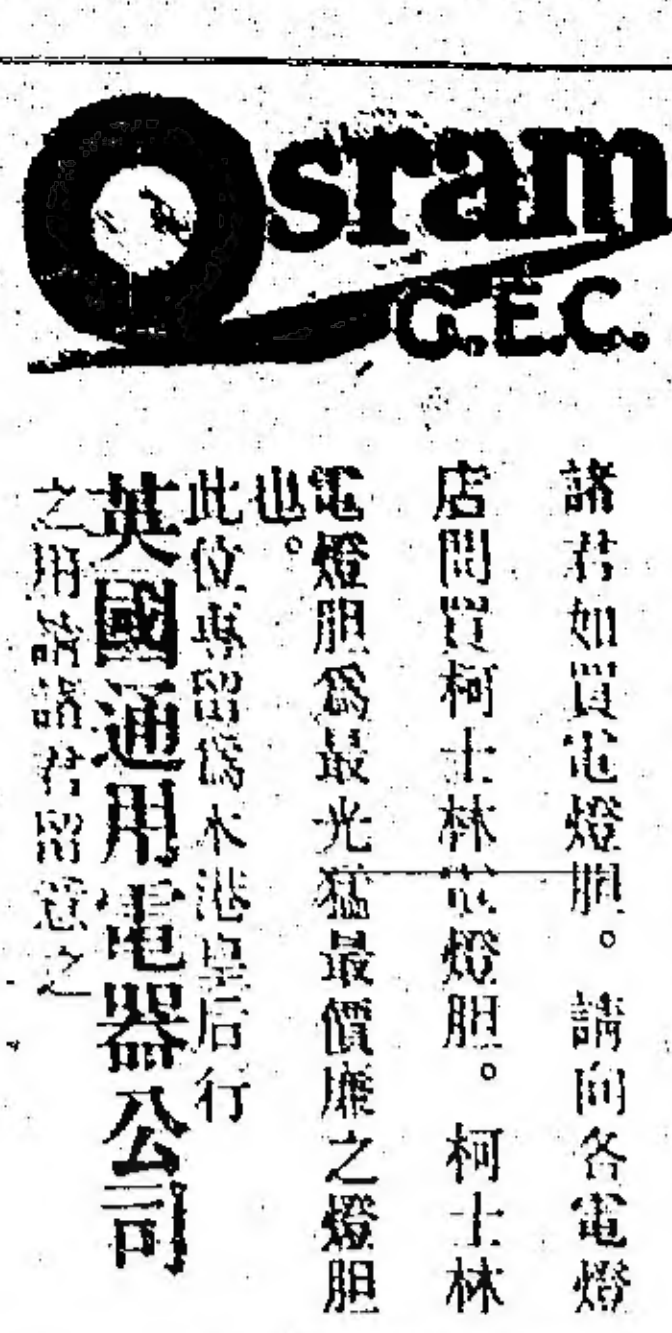 Osram
G.E.C.
諸君如買電燈胆。請向各電燈
店問買柯士林電燈胆。柯士林
電燈胆爲最光猛最價廉之燈胆
也。
此位專留爲本港皇后行
英國通用電器公司
之用諸君留意之